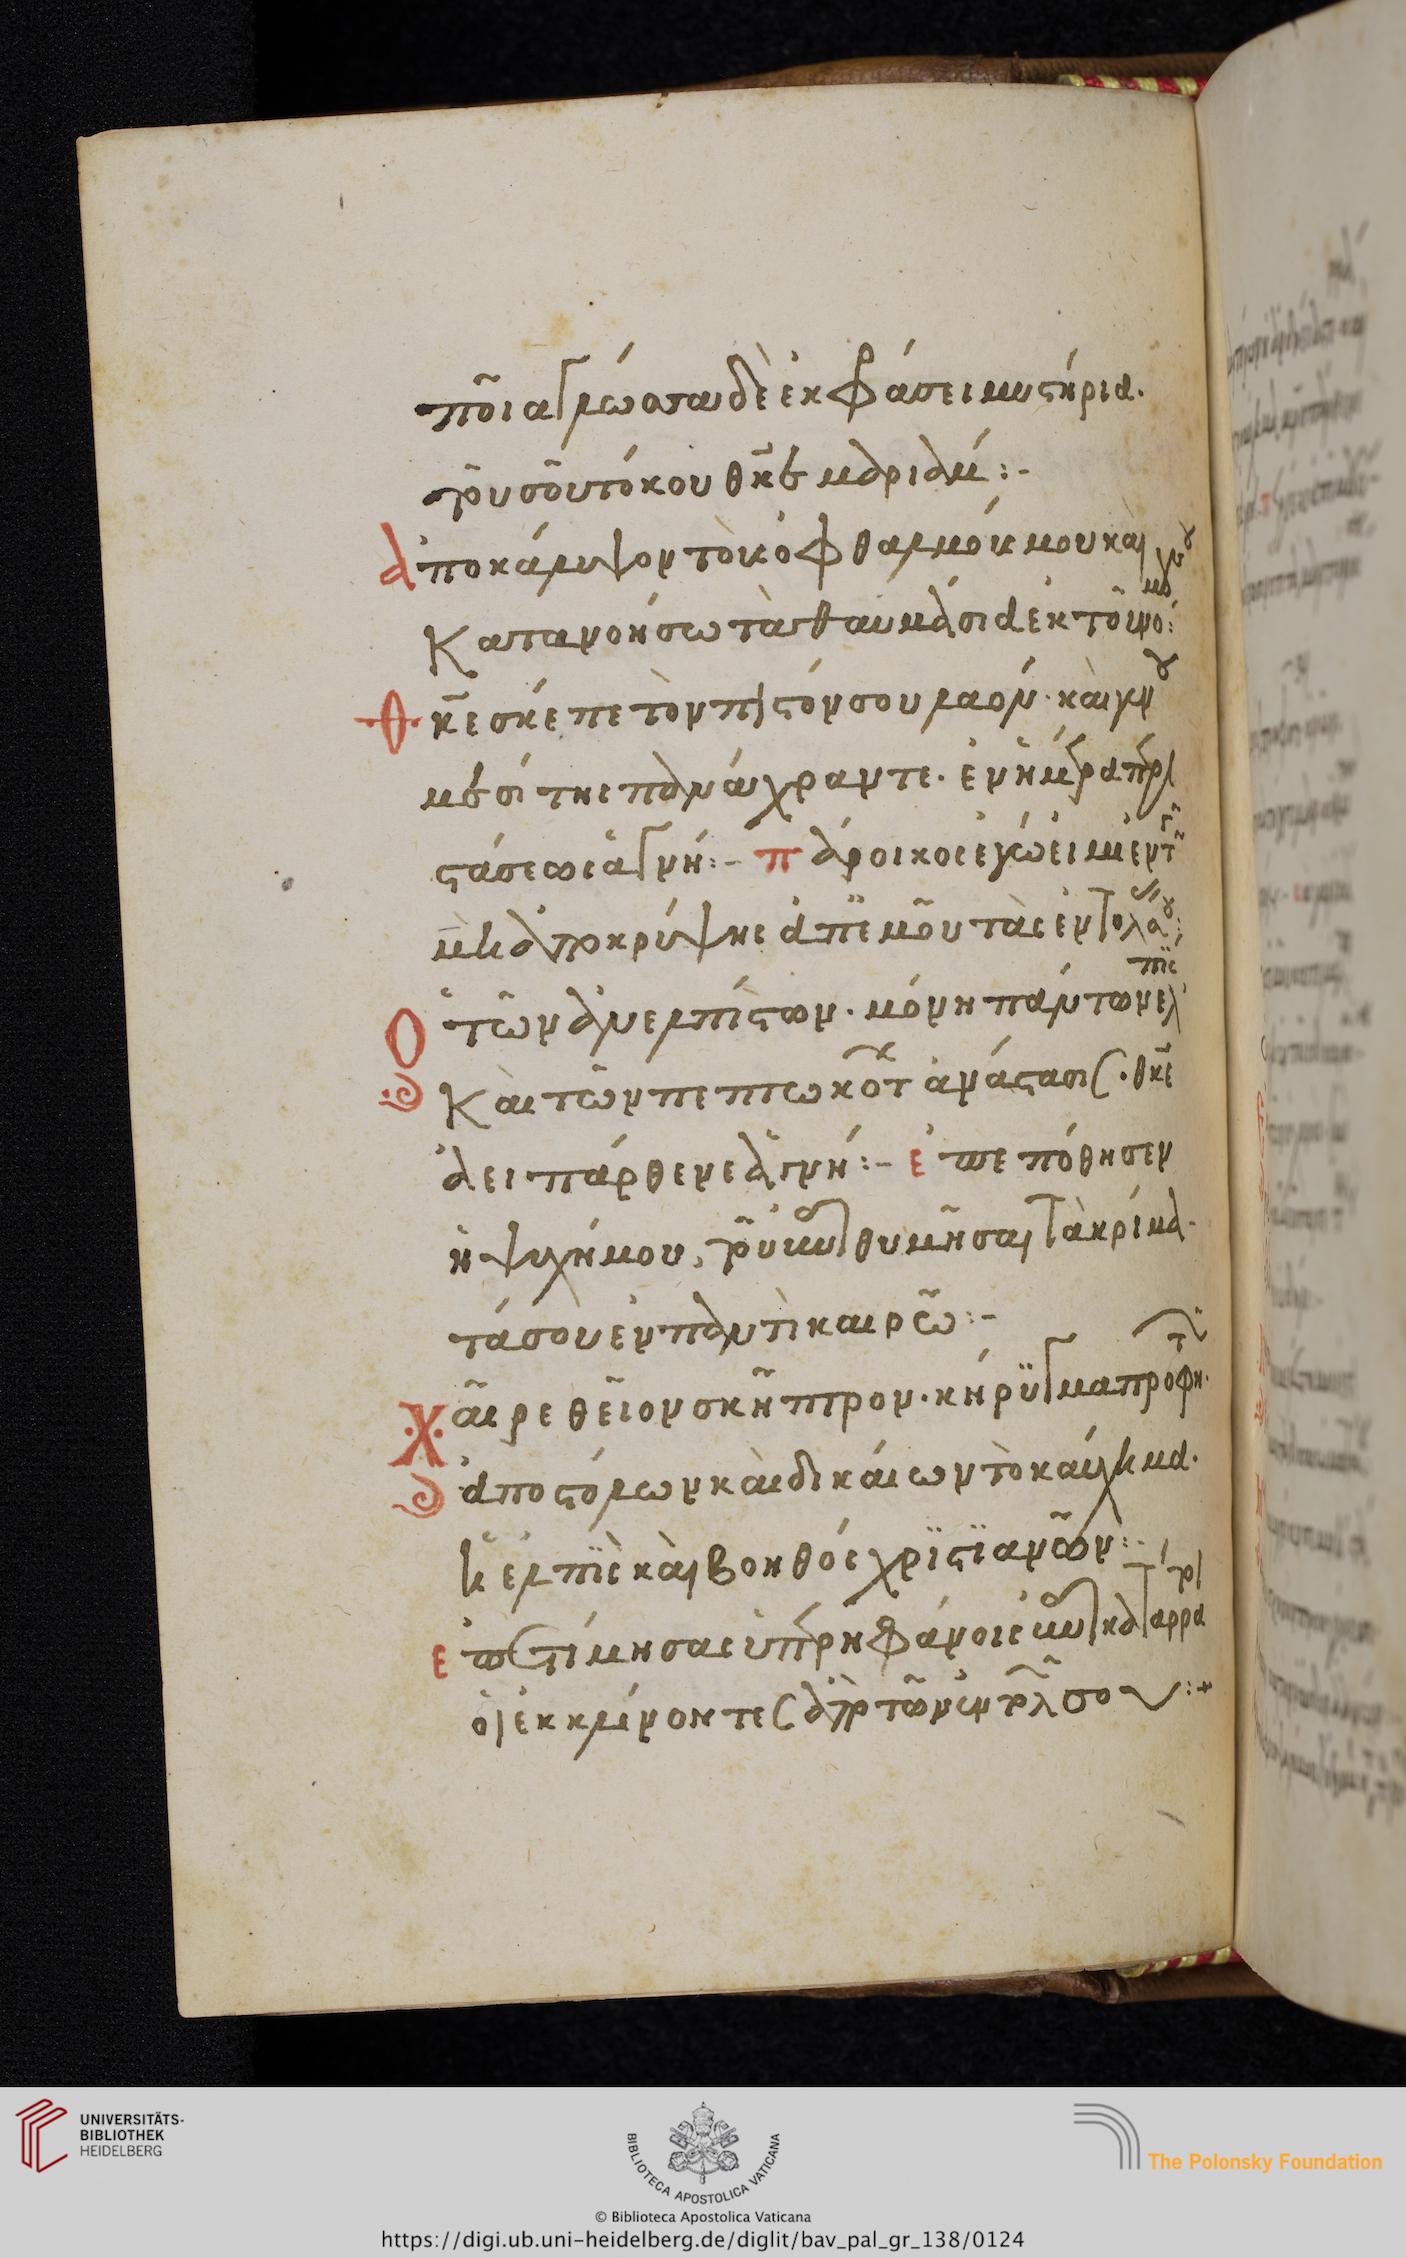 ποῖα γλῶττα δὲ ἐκφράσει μυστήρια.
τοῦ σοῦ τόκου θκε μαριάμ:-
ἀποκάλυψον τοὺς ὀφθαλμούς μου καὶ
Κατανοήσω τὰ θαυμάσια ἐκ τοῦ νό: μου σου
Θκε σκέπε τὸν πιστόν σου λαόν. καὶ γενοῦ
μεσίτης πανάχραντε. ἐν ἡμέρα παρα
στάσεως ἁγνή:- παροικος ἐγώ εἰμι ἐν τῇ γῇ
μὴ ἀποκρύψης ἀπ' ἐμοῦ τὰς ἐντολάς σου:
Ὁ τῶν ἀνελπίστων. μόνη πάντων ἐλπὶς
Καὶ τῶν πεπτωκότων ἀνάστασις. θκε
ἀειπάρθενε ἁγνή:- ἐπεπόθησεν
ἡ ψυχή μου, τοῦ ἐπιθυμῆσαι τὰ κρίμα
τά σου ἐν παντὶ καιρῶ:-
Χαῖρε θεῖον σκῆπτρον. κήρυγμα προφητῶν
ἀποστόλων καὶ δικαίων τὸ καύχημα.
ἡ ἐλπὶς καὶ βοηθός χριστιανῶν:-
Ἐπετίμησας ὑπερηφάνοις ἐπικατάρατοι
οἱ ἐκκλίνοντες ἀπὸ τῶν ἐντολῶν σου:+
UNIVERSITÄTS-
BIBLIOTHEK
HEIDELBERG
BIBLIOTECA APOSTOLICA VATICANA
The Polonsky Foundation
© Biblioteca Apostolica Vaticana
https://digi.ub.uni-heidelberg.de/diglit/bav_pal_gr_138/0124